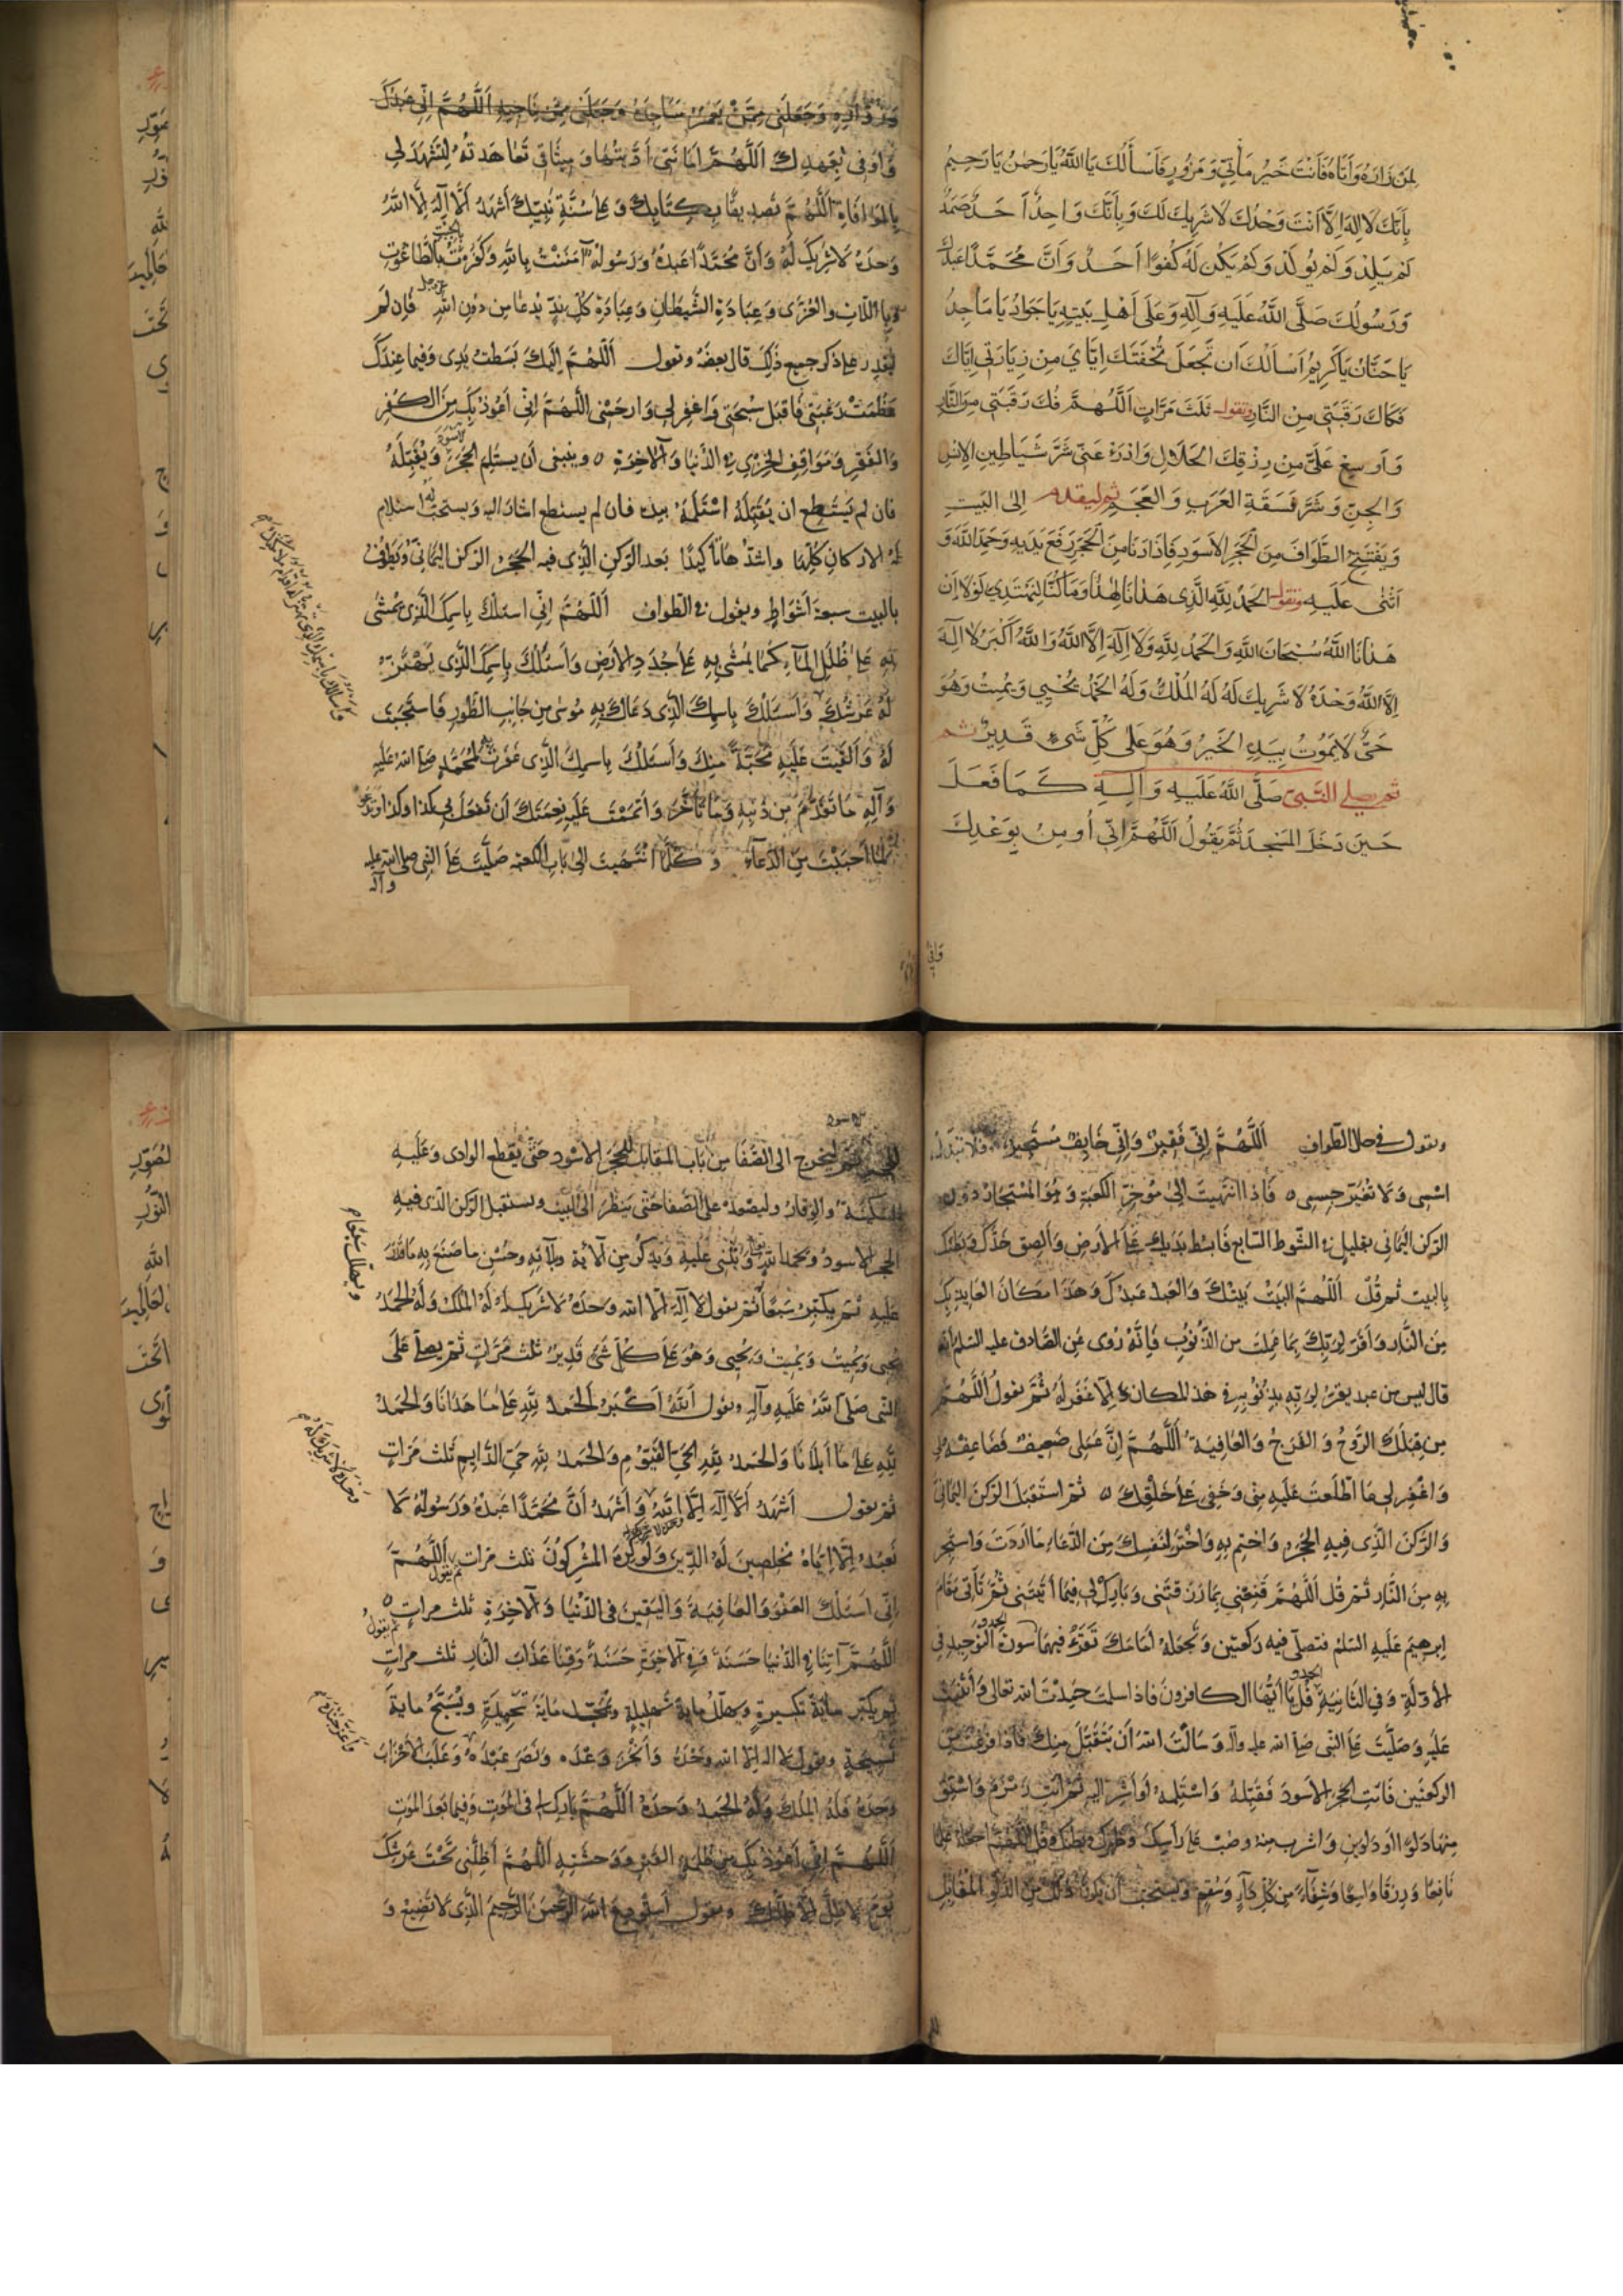 لِمَن زَارَهُ وَأَتَاهُ فَأَنْتَ خَيْرُ مَأْتِيٍّ وَمَزُورٍ فَأَسْأَلُكَ يَا اللَّهُ يَا رَحْمٰنُ يَا رَحِيمُ
بِأَنَّكَ لَا إِلَهَ إِلَّا أَنْتَ وَحْدَكَ لَا شَرِيكَ لَكَ وَبِأَنَّكَ وَاحِدٌ أَحَدٌ صَمَدٌ
لَمْ يَلِدْ وَلَمْ يُولَدْ وَلَمْ يَكُنْ لَهُ كُفُوًا أَحَدٌ وَأَنَّ مُحَمَّدًا عَبْدُكَ
وَرَسُولُكَ صَلَّى اللَّهُ عَلَيْهِ وَآلِهِ وَعَلَى أَهْلِ بَيْتِهِ يَا جَوَادُ يَا مَاجِدُ
يَا حَنَّانُ يَا كَرِيمُ أَسْأَلُكَ أَنْ تَجْعَلَ تُحْفَتَكَ إِيَّايَ مِنْ زِيَارَتِي إِيَّاكَ
فَكَاكَ رَقَبَتِي مِنَ النَّارِ وتقول ثَلَثَ مَرَّاتٍ اَللَّهُمَّ فُكَّ رَقَبَتِي مِنَ النَّارِ
وَأَوْسِعْ عَلَيَّ مِنْ رِزْقِكَ الْحَلَالِ وَادْرَءْ عَنِّي شَرَّ شَيَاطِينِ الْإِنْسِ
وَالْجِنِّ وَشَرَّ فَسَقَةِ الْعَرَبِ وَالْعَجَمِ ثم ليقدم إِلَى الْبَيْتِ
وَيَفْتَتِحُ الطَّوَافَ مِنَ الْحَجَرِ الْأَسْوَدِ فَإِذَا دَنَا مِنَ الْحَجَرِ رَفَعَ يَدَيْهِ وَحَمِدَ اللَّهَ وَ
أَثْنَى عَلَيْهِ وتقول الْحَمْدُ لِلَّهِ الَّذِي هَدَانَا لِهَذَا وَمَا كُنَّا لِنَهْتَدِيَ لَوْلَا أَنْ
هَدَانَا اللَّهُ سُبْحَانَ اللَّهِ وَالْحَمْدُ لِلَّهِ وَلَا إِلَهَ إِلَّا اللَّهُ وَاللَّهُ أَكْبَرُ لَا إِلَهَ
إِلَّا اللَّهُ وَحْدَهُ لَا شَرِيكَ لَهُ لَهُ الْمُلْكُ وَلَهُ الْحَمْدُ يُحْيِي وَيُمِيتُ وَهُوَ
حَيٌّ لَا يَمُوتُ بِيَدِهِ الْخَيْرُ وَهُوَ عَلَى كُلِّ شَيْءٍ قَدِيرٌ ثم
ثم يصلي النبي صَلَّى اللَّهُ عَلَيْهِ وَآلِهِ كَمَا فَعَلَ
حِينَ دَخَلَ الْمَسْجِدَ ثُمَّ يَقُولُ اَللَّهُمَّ إِنِّي أُومِنُ بِوَعْدِكَ
وَزُوَّارِهِ وَجَعَلَنِي مِمَّنْ يَعْمُرُ مَسَاجِدَهُ وَجَعَلَنِي مِمَّنْ يُنَاجِيهِ اَللَّهُمَّ إِنِّي عَبْدُكَ
وَأُوفِي بِعَهْدِكَ اَللَّهُمَّ أَمَانَتِي أَدَّيْتُهَا وَمِيثَاقِي تَعَاهَدْتُهُ لِتَشْهَدَ لِي
بِالْمُوَافَاةِ اَللَّهُمَّ تَصْدِيقًا بِكِتَابِكَ وَعَلَى سُنَّةِ نَبِيِّكَ أَشْهَدُ أَنْ لَا إِلَهَ إِلَّا اللَّهُ
وَحْدَهُ لَا شَرِيكَ لَهُ وَأَنَّ مُحَمَّدًا عَبْدُهُ وَرَسُولُهُ آمَنْتُ بِاللَّهِ وَكَفَرْتُ بِالْجِبْتِ وَالطَّاغُوتِ
وَبِاللَّاتِ وَالْعُزَّى وَعِبَادَةِ الشَّيْطَانِ وَعِبَادَةِ كُلِّ نِدٍّ يُدْعَا مِنْ دُونِ اللَّهِ عز وجل فَإِنْ لَمْ
يقدر على ذكر جميع ذَلِكَ قال بعضَهُ وتقول اَللَّهُمَّ إِلَيْكَ بَسَطْتُ يَدِي وَفِيمَا عِنْدَكَ
عَظُمَتْ رَغْبَتِي فَاقْبَلْ سُبْحَتِي وَاغْفِرْ لِي وَارْحَمْنِي اَللَّهُمَّ إِنِّي أَعُوذُ بِكَ مِنَ الْكُفْرِ
وَالْفَقْرِ وَمَوَاقِفِ الْخِزْيِ فِي الدُّنْيَا وَالْآخِرَةِ ٥ وينبغي أن يستلم الحجر الأسود وَيُقَبِّلَهُ
فان لم يَسْتَطِع ان يُقَبِّلَهُ اسْتَلَمَهُ بيده فان لم يستطع اشار اليه ويستحب له استلام
الاركان كلّها واشدّها تأكيدًا بَعد الرّكن الّذي فيه الحَجَرُ الرّكن اليَمانيّ وَيَطُوفُ
بالبيت سبعة أَشْوَاطٍ ويقول في الطّواف اَللَّهُمَّ إِنِّي أَسْئَلُكَ بِاسْمِكَ الَّذِي يُمْشَى
بِهِ عَلَى ظُلَلِ الْمَاءِ كَمَا يُمْشَى بِهِ عَلَى جُدَدِ الْأَرْضِ وَأَسْئَلُكَ بِاسْمِكَ الَّذِي يَهْتَزُّ
لَهُ عَرْشُكَ وَأَسْئَلُكَ بِاسْمِكَ الَّذِي دَعَاكَ بِهِ مُوسَى مِنْ جَانِبِ الطُّورِ فَاسْتَجَبْتَ
لَهُ وَأَلْقَيْتَ عَلَيْهِ مَحَبَّةً مِنْكَ وَأَسْئَلُكَ بِاسْمِكَ الَّذِي غَفَرْتَ بِهِ لِمُحَمَّدٍ صلى الله عليه
وَآلِهِ مَا تَقَدَّمَ مِنْ ذَنْبِهِ وَمَا تَأَخَّرَ وَأَتْمَمْتَ عَلَيْهِ نِعْمَتَكَ أَنْ تَفْعَلَ بِي كَذَا وكذا
لما أَحْبَبْتَ مِنَ الدُّعَاءِ وَكُلَّمَا انْتَهَيْتَ إلى بَابِ الْكَعْبَةِ صَلَّيْتَ عَلَى النبي صلى الله عليه
وآله
وتقول في حال الطّواف اَللَّهُمَّ إِنِّي فَقِيرٌ وَإِنِّي خَايِفٌ مُسْتَجِيرٌ فَلَا تُبَدِّلْ
اسْمِي وَلَا تُغَيِّرْ جِسْمِي ٥ فَإِذَا انْتَهَيْتَ إِلَى مُؤَخَّرِ الْكَعْبَةِ وَهُوَ الْمُسْتَجَارُ دُونَ
الرّكن اليَماني بقليل في الشَّوط السّابع فَابْسُطْ يَدَيْكَ عَلَى الْأَرْضِ وَأَلْصِقْ خَدَّكَ وَبَطْنَكَ
بِالبيت ثُم قُلْ اَللَّهُمَّ الْبَيْتُ بَيْتُكَ وَالْعَبْدُ عَبْدُكَ وَهَذَا مَكَانُ الْعَايِذِ بِكَ
مِنَ النَّارِ وَأَقِرَّ لِرَبِّكَ بِمَا عَمِلْتَ من الذُّنُوبِ فَإِنَّهُ رُوِيَ عَنِ الصَّادِقِ عليه السلام أنه
قال ليس من عبد يقرّ لِرَبِّهِ بِذُنُوبِهِ في هذا المكان إِلَّا غَفَرَ لَهُ ثُمَّ يقولُ اَللَّهُمَّ
مِنْ قِبَلِكَ الرَّوْحُ وَالْفَرَجُ وَالْعَافِيَةُ اَللَّهُمَّ إِنَّ عَمَلِي ضَعِيفٌ فَضَاعِفْهُ لِي
وَاغْفِرْ لِي مَا اطَّلَعْتَ عَلَيْهِ مِنِّي وَخَفِيَ عَلَى خَلْقِكَ ٥ ثم اسْتَقْبِلِ الرُّكْنَ الْيَمَانِيَّ
وَالرُّكْنَ الَّذِي فِيهِ الْحَجَرُ وَاخْتِمْ بِهِ وَاخْتَرْ لِنَفْسِكَ مِنَ الدُّعَاءِ مَا أَرَدْتَ وَاسْتَجِرْ
بِهِ مِنَ النَّارِ ثُمَّ قُلْ اَللَّهُمَّ قَنِّعْنِي بِمَا رَزَقْتَنِي وَبَارِكْ لِي فِيمَا آتَيْتَنِي ثُمَّ تَأْتِي مَقَامَ
إبرهيمَ عَلَيْهِ السّلام فتصلّي فيه رَكْعَتَيْنِ وَتَجْعَلُهُ أَمَامَكَ تَقْرَءُ فيهِمَا سورة التّوحيد في
الْأُولَةِ وَفِي الثَّانِيَةِ قُلْ يَا أَيُّهَا الْكَافِرُونَ فَإِذَا سلمت حَمِدْتَ الله تعالى وَأَثْنَيْتَ
عَلَيْهِ وَصَلَّيْتَ عَلَى النَّبِي صلى الله عليه وآله وَسَأَلْتَ اللهَ أَنْ يَتَقَبَّلَ مِنْكَ فَإِذَا فرغت من
الركعتين فَائْتِ الحجر الأسود فَقَبِّلْهُ وَاسْتَلِمْهُ أَوْ أَشِرْ إِلَيْهِ ثم ائت زَمْزَمَ وَاسْتَقِ
مِنْهَا دَلوًا او دَلْوَيْنِ وَاشرب منه وصبّ عَلَى رَأْسِكَ وَظَهْرِكَ وَبَطْنِكَ وَقُلْ اَللَّهُمَّ اجْعَلْهُ عِلْمًا
نَافِعًا وَرِزْقًا وَاسِعًا وَشِفَاءً مِنْ كُلِّ دَاءٍ وَسُقْمٍ وَيستحب أَنْ يَكُونَ ذَلِكَ مِنَ الدَّلْوِ الْمُقَابِلِ
ثم ليخرج الى الصَّفَا مِنَ الباب المقابل للحجر الاسود حَتَّى يَقْطَعَ الوادي وَعَلَيْهِ
السَّكِينَةُ وَالوقار وليصعد على الصّفا حَتَّى يَنْظُرَ إلى البَيْت ويستقبل الرّكن الّذي فيه
الحجر الاسود ويحمد الله تعالى وَيُثْنِي عليه وَيَذْكُر مِن آلَائِهِ وَبَلَائِهِ وَحُسْنِ ما صَنَعَ بِهِ مَا قَدَرَ
عَلَيْهِ ثُمَّ يكبّر سَبْعًا ثم يقول لا إِلَهَ إلّا الله وَحْدَهُ لَا شَرِيكَ لَهُ لَهُ الْمُلْكُ وَلَهُ الْحَمْدُ
يُحْيِي وَيُمِيتُ وَيُمِيتُ وَيُحْيِي وَهُوَ عَلَى كُلِّ شَيْءٍ قَدِيرٌ ثلث مَرَّاتٍ ثُم يصلّي عَلَى
النّبي صَلَّى اللهُ عَلَيْهِ وَآلِهِ ويقول اَللَّهُ أَكْبَرُ الْحَمْدُ لِلَّهِ عَلَى مَا هَدَانَا وَالْحَمْدُ
لِلَّهِ عَلَى مَا أَبْلَانَا وَالْحَمْدُ لِلَّهِ الْحَيِّ الْقَيُّومِ وَالْحَمْدُ لِلَّهِ حَيِّ الدَّايِمِ ثلث مَرَاتٍ
ثم يقول أَشْهَدُ أَنْ لَا إِلَهَ إِلَّا اللَّهُ وَأَشْهَدُ أَنَّ مُحَمَّدًا عَبْدُهُ وَرَسُولُهُ لَا
نَعْبُدُ إِلَّا إِيَّاهُ مُخْلِصِينَ لَهُ الدِّينَ وَلَوْ كَرِهَ الْمُشْرِكُونَ ثلث مَرات ثم يقول اَللَّهُمَّ
إِنِّي أَسْئَلُكَ الْعَفْوَ وَالْعَافِيَةَ وَالْيَقِينَ فِي الدُّنْيَا وَالْآخِرَةِ ثلث مرات ثم يقول
اَللَّهُمَّ آتِنَا فِي الدُّنْيَا حَسَنَةً وَفِي الْآخِرَةِ حَسَنَةً وَقِنَا عَذَابَ النَّارِ ثلث مرات
ثم يكبّر مائَةَ تكبيرةٍ ويهلّل مايةَ تهليلةٍ ويحمّد مَايَةَ تَحْمِيدَةٍ ويُسَبِّحُ مايةَ
تَسْبِيحَةٍ ويقول لا اله إلا الله وَحْدَهُ وَأَنْجَزَ وَعْدَهُ وَنَصَرَ عَبْدَهُ وَغَلَبَ الْأَحْزَابَ
وَحْدَهُ فَلَهُ الْمُلْكُ وَلَهُ الْحَمْدُ وَحْدَهُ اَللَّهُمَّ بَارِكْ لِي فِي الْمَوْتِ وَفِيمَا بَعْدَ الْمَوْتِ
اَللَّهُمَّ إِنِّي أَعُوذُ بِكَ مِنْ ظُلْمَةِ الْقَبْرِ وَوَحْشَتِهِ اَللَّهُمَّ أَظِلَّنِي تَحْتَ عَرْشِكَ
يَوْمَ لَا ظِلَّ إِلَّا ظِلُّكَ ويقول أَسْتَوْدِعُ اللَّهَ الرَّحْمَنَ الرَّحِيمَ الَّذِي لَا تَضِيعُ وَ